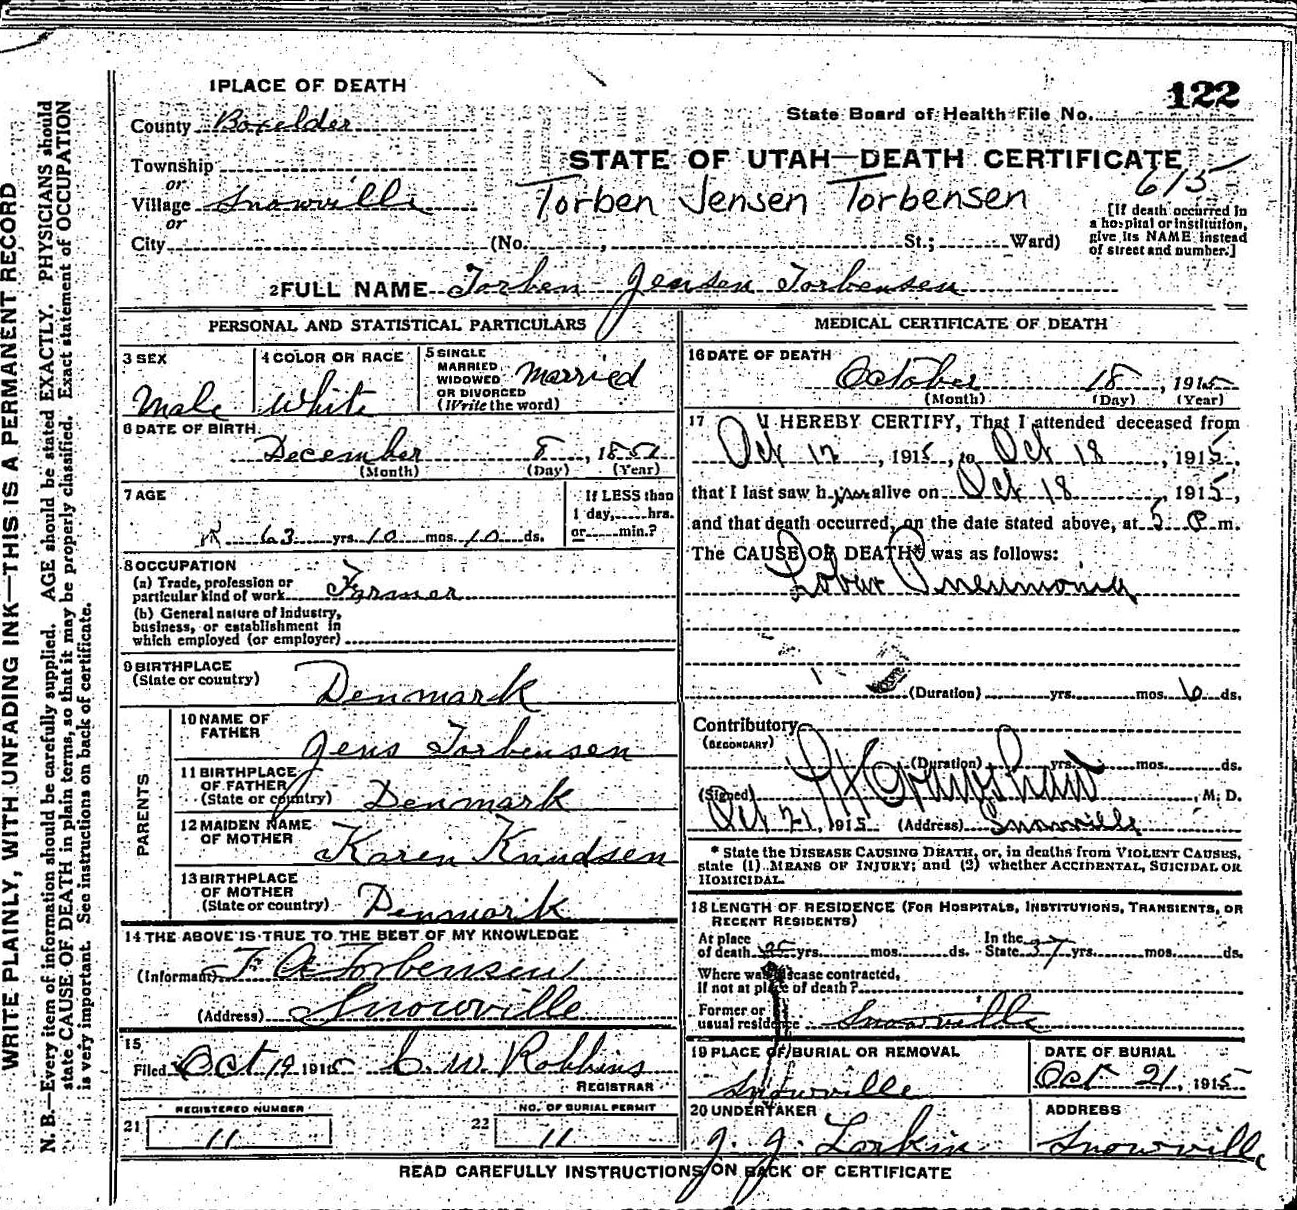 WRITE PLAINLY, WITH UNFADING INK—THIS IS A PERMANENT RECORD
N. B.—Every item of information should be carefully supplied. AGE should be stated EXACTLY. PHYSICIANS should
state CAUSE OF DEATH in plain terms, so that it may be properly classified. Exact statement of OCCUPATION
is very important. See instructions on back of certificate.
1 PLACE OF DEATH
122
State Board of Health File No.
County Boxelder
STATE OF UTAH—DEATH CERTIFICATE
Township
or
615
Village Snowville
Torben Jensen Torbensen
or
[If death occurred in
a hospital or institution,
give its NAME instead
of street and number.]
City (No. , St.; Ward)
2 FULL NAME Torben Jensen Torbensen
PERSONAL AND STATISTICAL PARTICULARS
3 SEX
Male
4 COLOR OR RACE
White
5 SINGLE
MARRIED
WIDOWED
OR DIVORCED
(Write the word)
Married
6 DATE OF BIRTH
December 8, 1851
(Month) (Day) (Year)
7 AGE
63 yrs. 10 mos. 10 ds.
If LESS than
1 day, hrs.
or min.?
8 OCCUPATION
(a) Trade, profession or
particular kind of work Farmer
(b) General nature of industry,
business, or establishment in
which employed (or employer)
9 BIRTHPLACE
(State or country) Denmark
PARENTS
10 NAME OF
FATHER
Jens Torbensen
11 BIRTHPLACE
OF FATHER
(State or country) Denmark
12 MAIDEN NAME
OF MOTHER
Karen Knudsen
13 BIRTHPLACE
OF MOTHER
(State or country) Denmark
14 THE ABOVE IS TRUE TO THE BEST OF MY KNOWLEDGE
(Informant) T. A. Torbensen
(Address) Snowville
15
Filed Oct 19 1915 C. W. Robbins
REGISTRAR
REGISTERED NUMBER
21 11
NO. OF BURIAL PERMIT
22 11
MEDICAL CERTIFICATE OF DEATH
16 DATE OF DEATH
October 18, 1915
(Month) (Day) (Year)
17 I HEREBY CERTIFY, That I attended deceased from
Oct 12, 1915, to Oct 18, 1915,
that I last saw h im alive on Oct 18, 1915,
and that death occurred, on the date stated above, at 5 P m.
The CAUSE OF DEATH* was as follows:
Lobar Pneumonia
(Duration) yrs. mos. 6 ds.
Contributory
(SECONDARY)
(Duration) yrs. mos. ds.
(Signed) Crawshaw, M. D.
Oct 21, 1915 (Address) Snowville
* State the DISEASE CAUSING DEATH, or, in deaths from VIOLENT CAUSES,
state (1) MEANS OF INJURY; and (2) whether ACCIDENTAL, SUICIDAL OR
HOMICIDAL.
18 LENGTH OF RESIDENCE (FOR HOSPITALS, INSTITUTIONS, TRANSIENTS, OR
RECENT RESIDENTS)
At place
of death yrs. mos. ds.
In the
State 37 yrs. mos. ds.
Where was disease contracted,
if not at place of death?
Former or
usual residence Snowville
19 PLACE OF BURIAL OR REMOVAL
Snowville
DATE OF BURIAL
Oct 21, 1915
20 UNDERTAKER
J. J. Larkin
ADDRESS
Snowville
READ CAREFULLY INSTRUCTIONS ON BACK OF CERTIFICATE